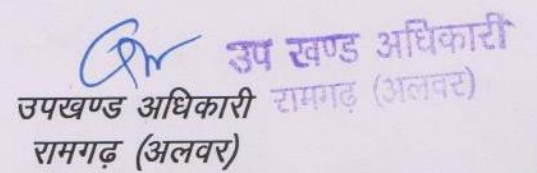 उप खण्ड अधिकारी
रामगढ़ (अलवर)
उपखण्ड अधिकारी
रामगढ़ (अलवर)